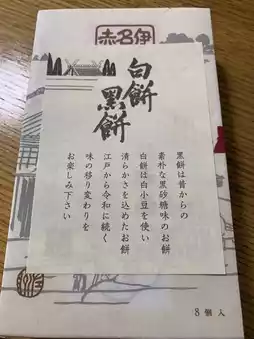 赤名伊
白餅
黒餅
黒餅は昔からの
素朴な黒砂糖味のお餅
白餅は白小豆を使い
清らかさを込めたお餅
江戸から令和に続く
味の移り変わりを
お楽しみ下さい
8個入